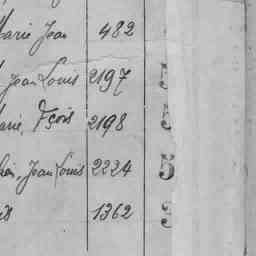 Marie Jean 482
Jean Louis 2197 5
Marie, Fçois 2198 5
Jean Louis 2224 5
1362 3